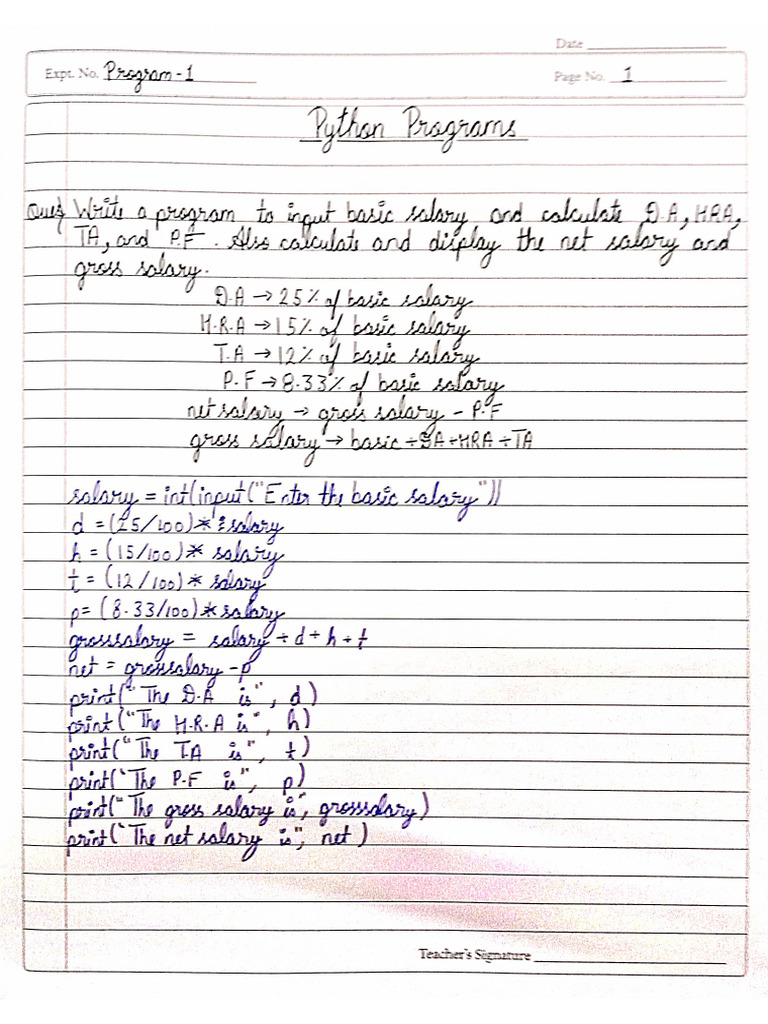 Date
Expt. No. Program - 1
Page No. 1
Python Programs
Ques Write a program to input basic salary and calculate D.A, HRA,
TA, and P.F. Also calculate and display the net salary and
gross salary.
D.A → 25% of basic salary
H.R.A → 15% of basic salary
T.A → 12% of basic salary
P.F → 8.33% of basic salary
net salary → gross salary - P.F
gross salary → basic + DA + HRA + TA
salary = int(input("Enter the basic salary"))
d = (25/100)* salary
h = (15/100)* salary
t = (12/100)* salary
p = (8.33/100)* salary
grosssalary = salary + d + h + t
net = grosssalary - p
print("The D.A is", d)
print("The H.R.A is", h)
print("The TA is", t)
print("The P.F is", p)
print("The gross salary is", grosssalary)
print("The net salary is", net)
Teacher's Signature